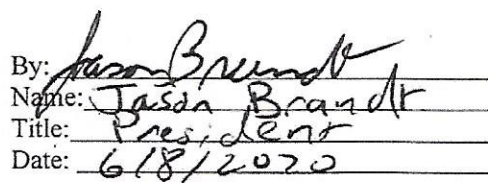 By: Jason Brandt
Name: Jason Brandt
Title: President
Date: 6/8/2020